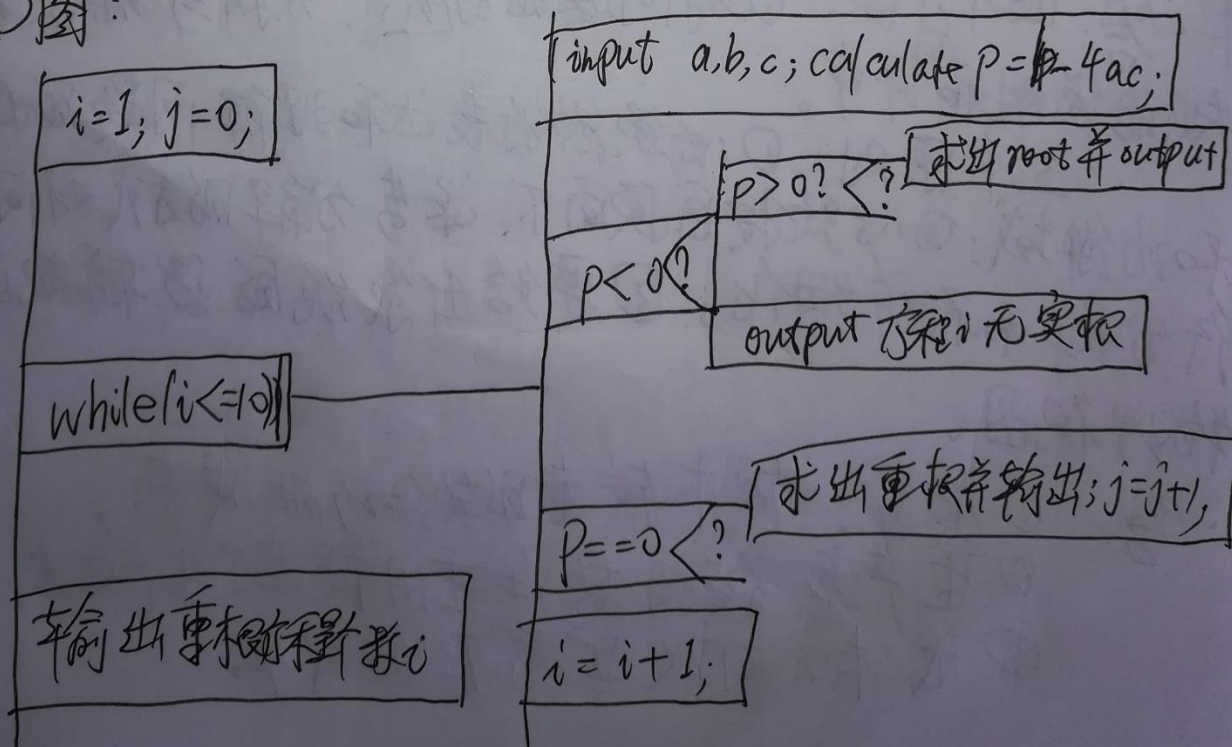 图:
i=1; j=0;
while(i<=10)
输出重根方程个数i
input a,b,c; calculate p= - 4ac;
p>0? ?
求出root并output
p<0?
output 方程i无实根
p==0 ?
求出重根并输出; j=j+1,
i=i+1;